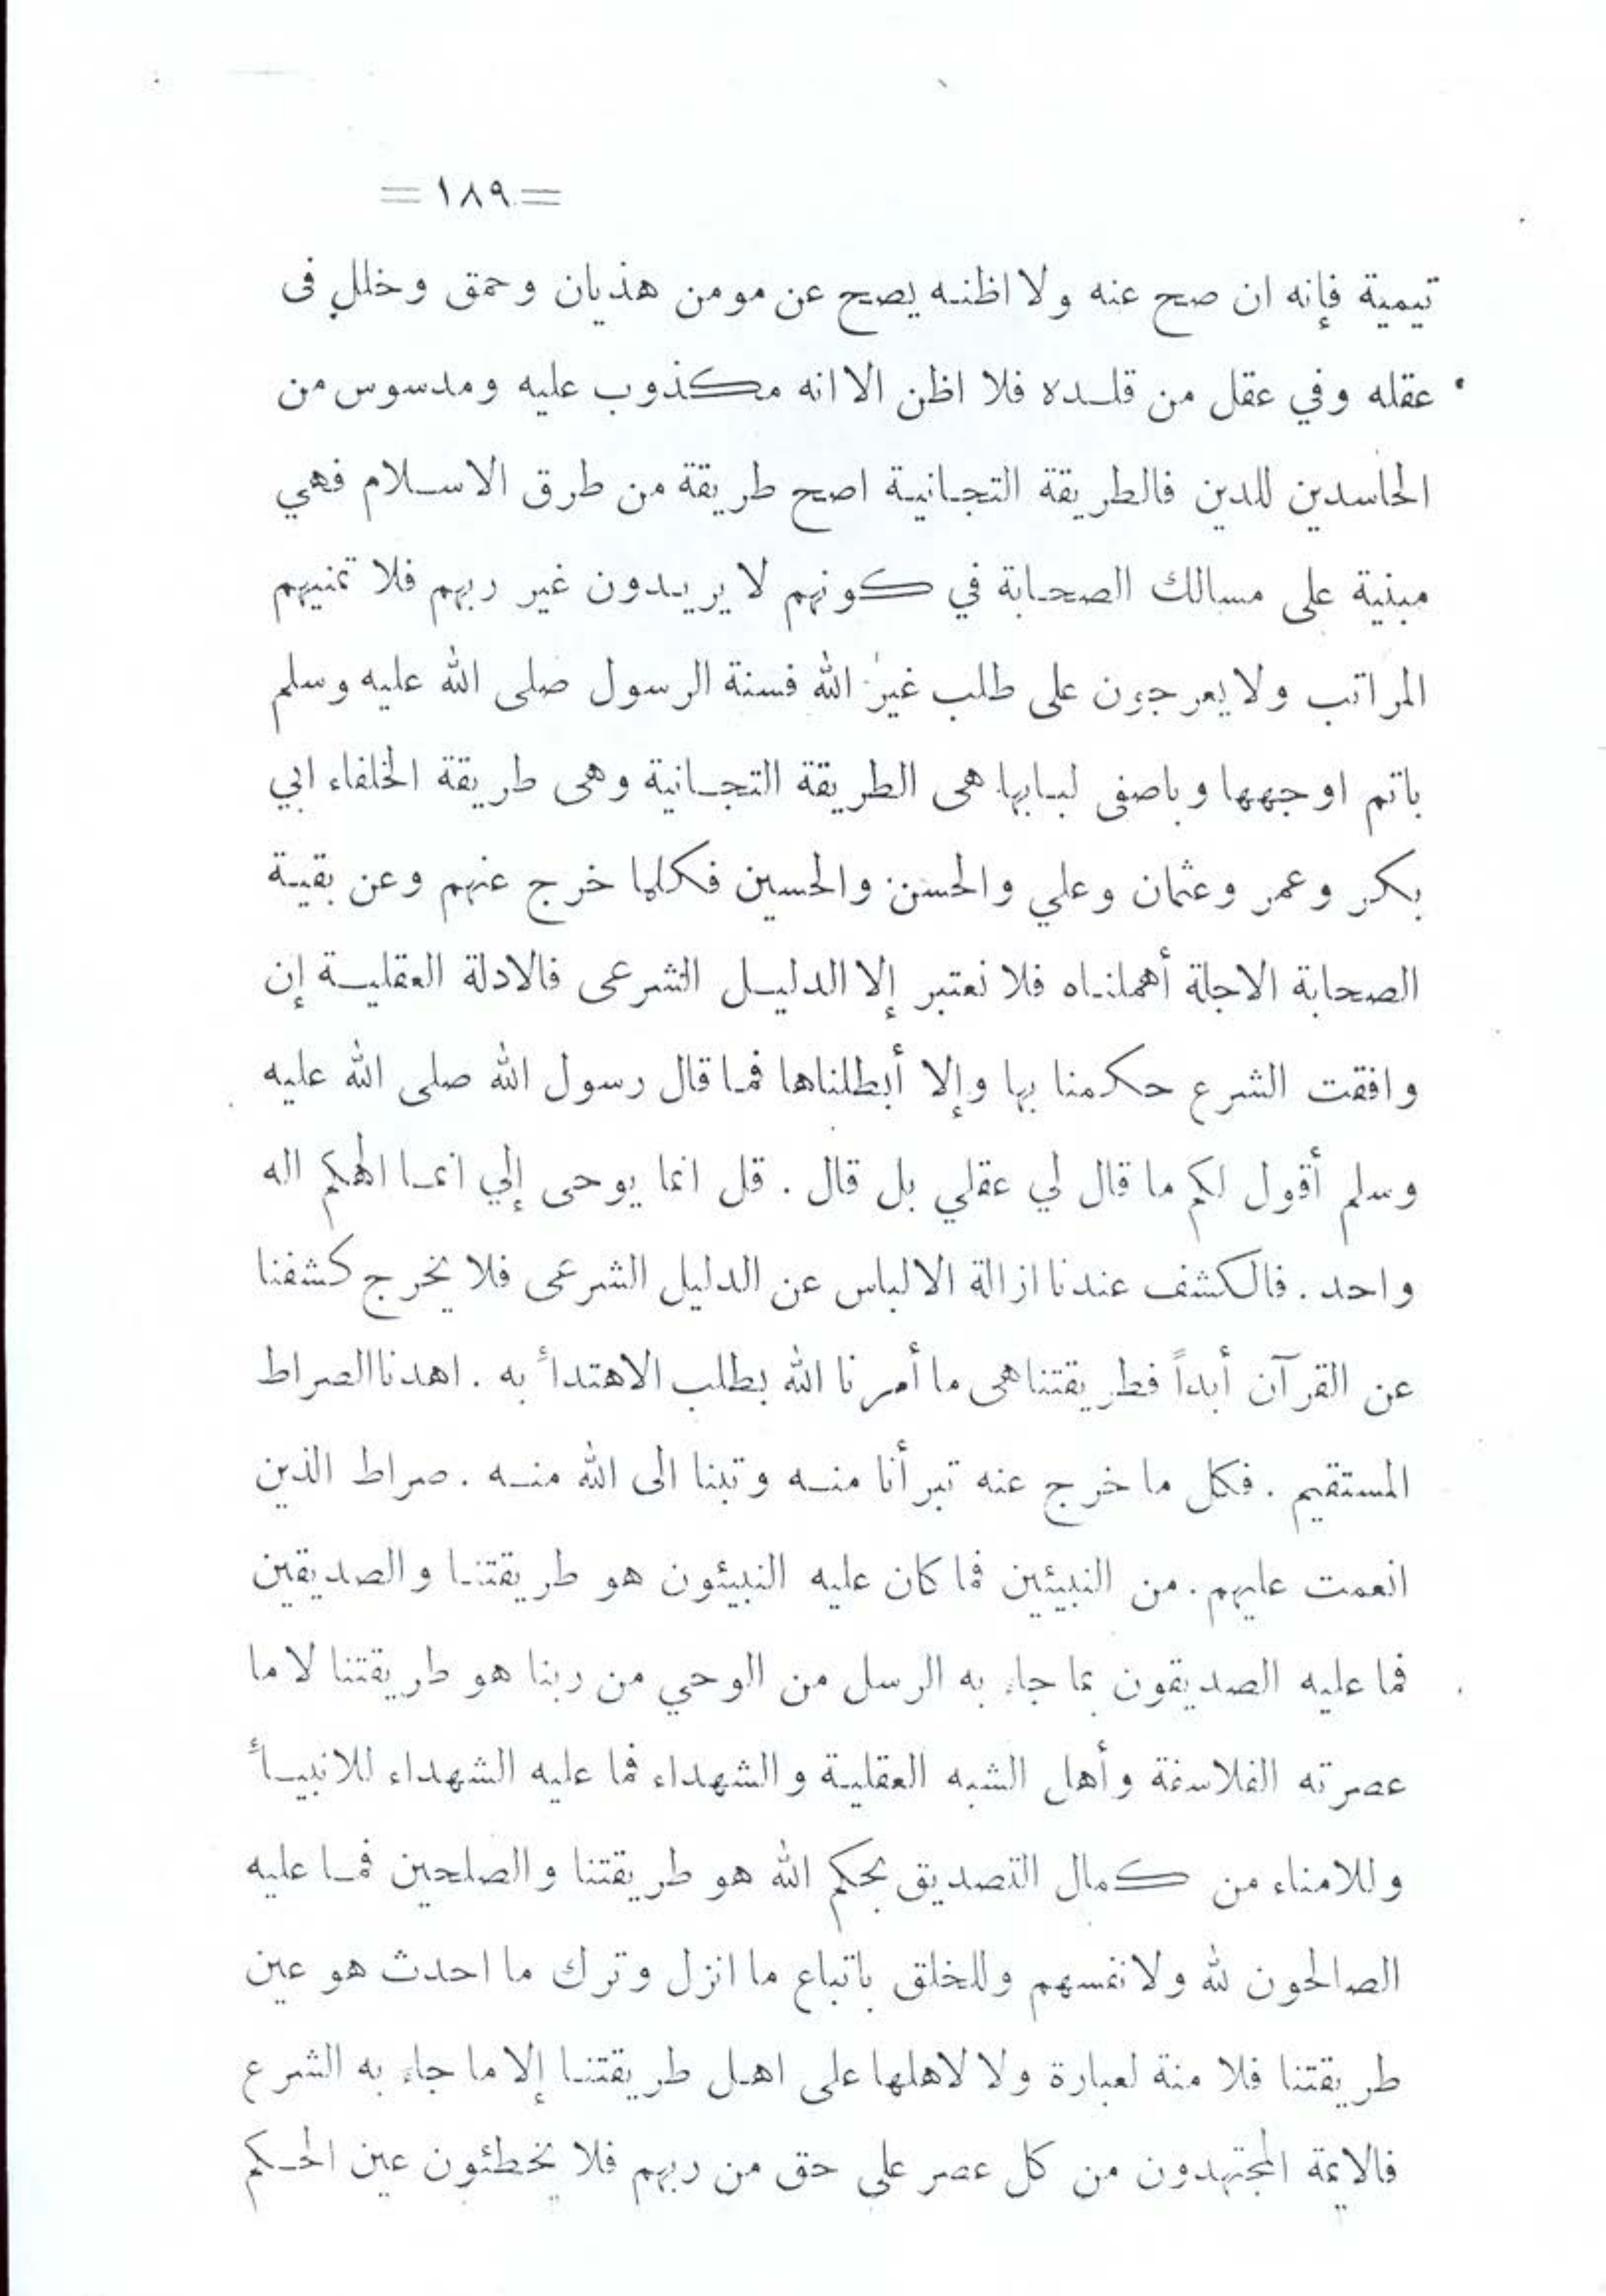 =١٨٩=
تيمية فإنه ان صح عنه ولا اظنه يصح عن مومن هذيان وحمق وخلل فى
عقله وفي عقل من قلده فلا اظن الا انه مكذوب عليه ومدسوس من
الحاسدين للدين فالطريقة التجانية اصح طريقة من طرق الاسلام فهي
مبنية على مسالك الصحابة في كونهم لا يريدون غير ربهم فلا تمنيهم
المراتب ولا يعرجون على طلب غير الله فسنة الرسول صلى الله عليه وسلم
باتم اوجهها وباصفى لبابها هى الطريقة التجانية وهى طريقة الخلفاء ابي
بكر وعمر وعثمان وعلي والحسن والحسين فكلما خرج عنهم وعن بقية
الصحابة الاجلة أهملناه فلا نعتبر إلا الدليل الشرعى فالادلة العقلية إن
وافقت الشرع حكمنا بها وإلا أبطلناها فما قال رسول الله صلى الله عليه
وسلم أقول لكم ما قال لي عقلي بل قال . قل انما يوحى إلي انما الهكم اله
واحد . فالكشف عندنا ازالة الالباس عن الدليل الشرعى فلا يخرج كشفنا
عن القرآن أبداً فطريقتنا هى ما أمرنا الله بطلب الاهتدأ به . اهدنا الصراط
المستقيم . فكل ما خرج عنه تبرأنا منه وتبنا الى الله منه . صراط الذين
انعمت عليهم . من النبيئين فما كان عليه النبيئون هو طريقتنا والصديقين
فما عليه الصديقون بما جاء به الرسل من الوحي من ربنا هو طريقتنا لا ما
عصرته الفلاسفة وأهل الشبه العقلية والشهداء فما عليه الشهداء للانبيأ
وللامناء من كمال التصديق بحكم الله هو طريقتنا والصلحين فما عليه
الصالحون لله ولانفسهم وللخلق باتباع ما انزل وترك ما احدث هو عين
طريقتنا فلا منة لعبارة ولا لاهلها على اهل طريقتنا إلا ما جاء به الشرع
فالايمة المجتهدون من كل عصر على حق من ربهم فلا يخطئون عين الحكم